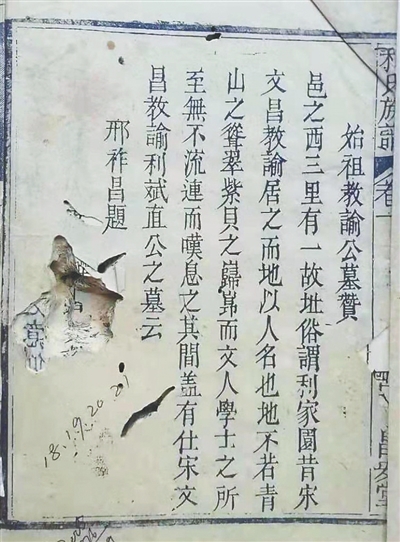 利氏族譜 卷一
始祖教諭公墓贊
邑之西三里有一故址俗謂利家園昔宋
文昌教諭居之而地以人名也地不若青
山之聳翠紫貝之巋而文人學士之所
至無不流連而嘆息之其間盖有仕宋文
昌教諭利斌直公之墓云
邢祚昌題
18.19.20.21